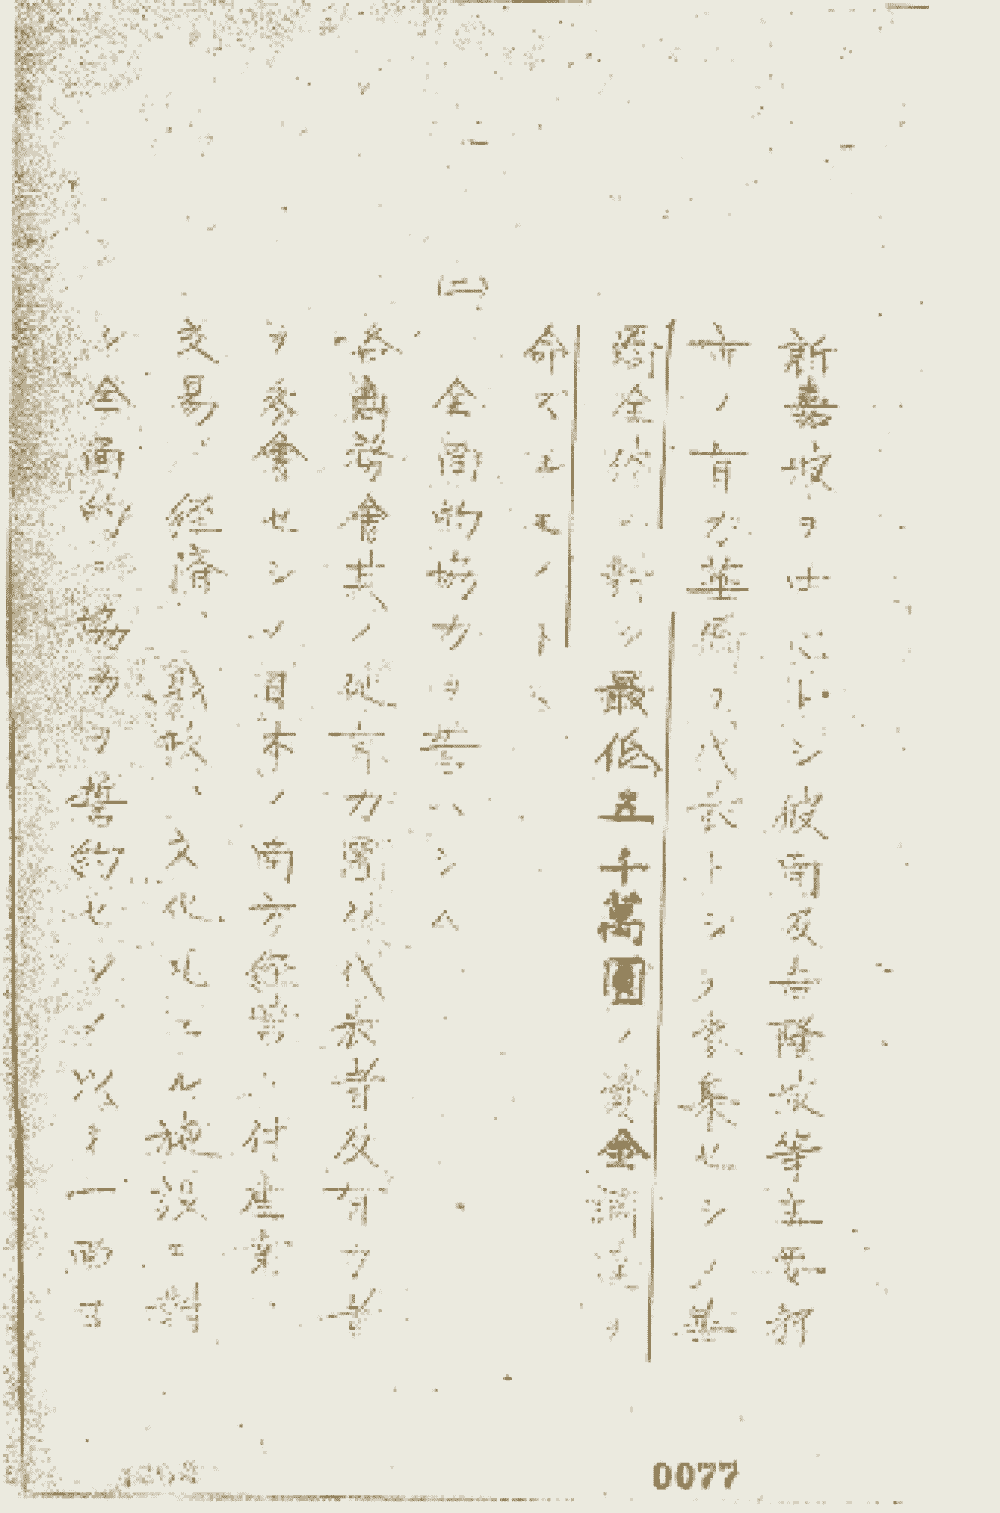 新嘉坡ヲ中心トシ彼南及吉隆坡等主要都
市ノ有力華僑ヲ代表トシテ参集セシメ
僑全体ニ対シ最低五千萬圓ノ資金調達ヲ
命ズルモノトス
(二) 全面的協力ヲ誓ハシム
各商務會其ノ他有力団体代表者及有力者
ヲ参會セシメ日本ノ南方経営ニ付産業、
交易、経済、政、文化凡ユル施設ニ対
シ全面的ニ協力ヲ誓約セシメ以テ一面ニ
0077